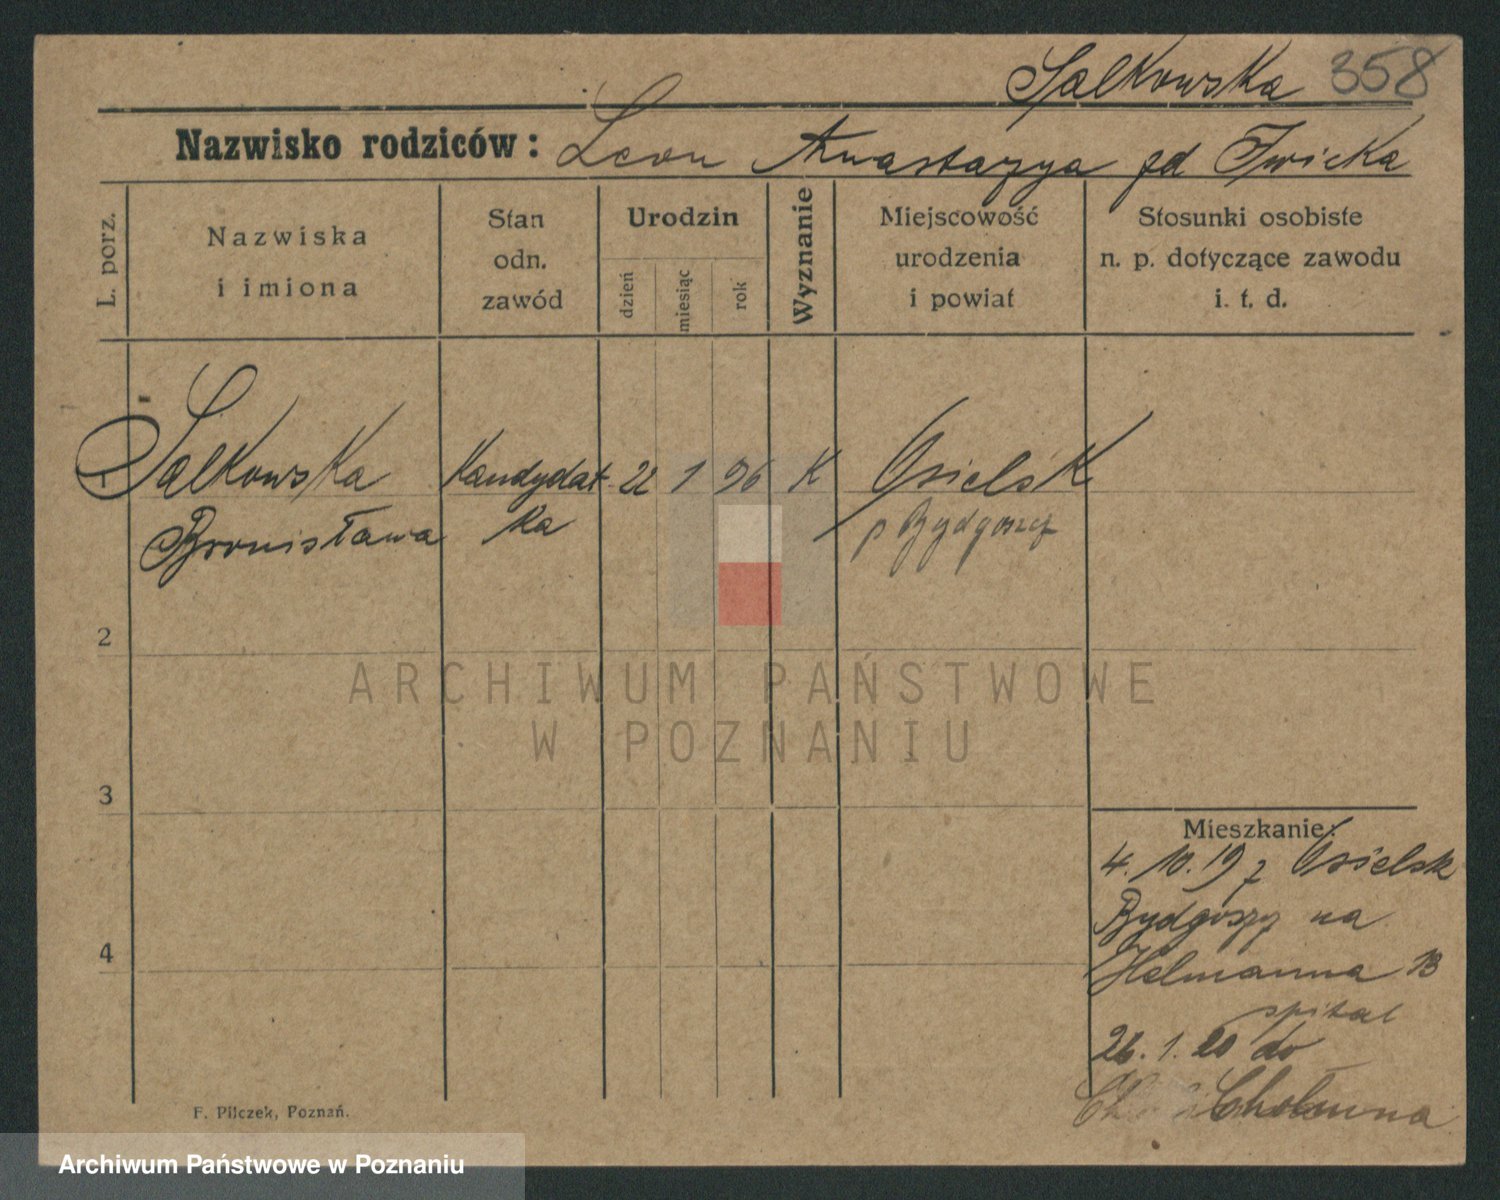 Salkowska 358
Nazwisko rodziców: Leon Anastazya zd Iwicka
L. porz.
Nazwiska
i imiona
Stan
odn.
zawód
Urodzin
dzień
miesiąc
rok
Wyznanie
Miejscowość
urodzenia
i powiat
Stosunki osobiste
n. p. dotyczące zawodu
i. t. d.
1 Salkowska Kandydat 22 1 96 K Osielsk
Bronisława ka p Bydgoszcz
2
ARCHIWUM PAŃSTWOWE
W POZNANIU
3
Mieszkanie:
4. 10. 19 z Osielsk
Bydgoszy na
4
Helmanna 13
spital
26. 1. 20 do
F. Pilczek, Poznań.
Archiwum Państwowe w Poznaniu